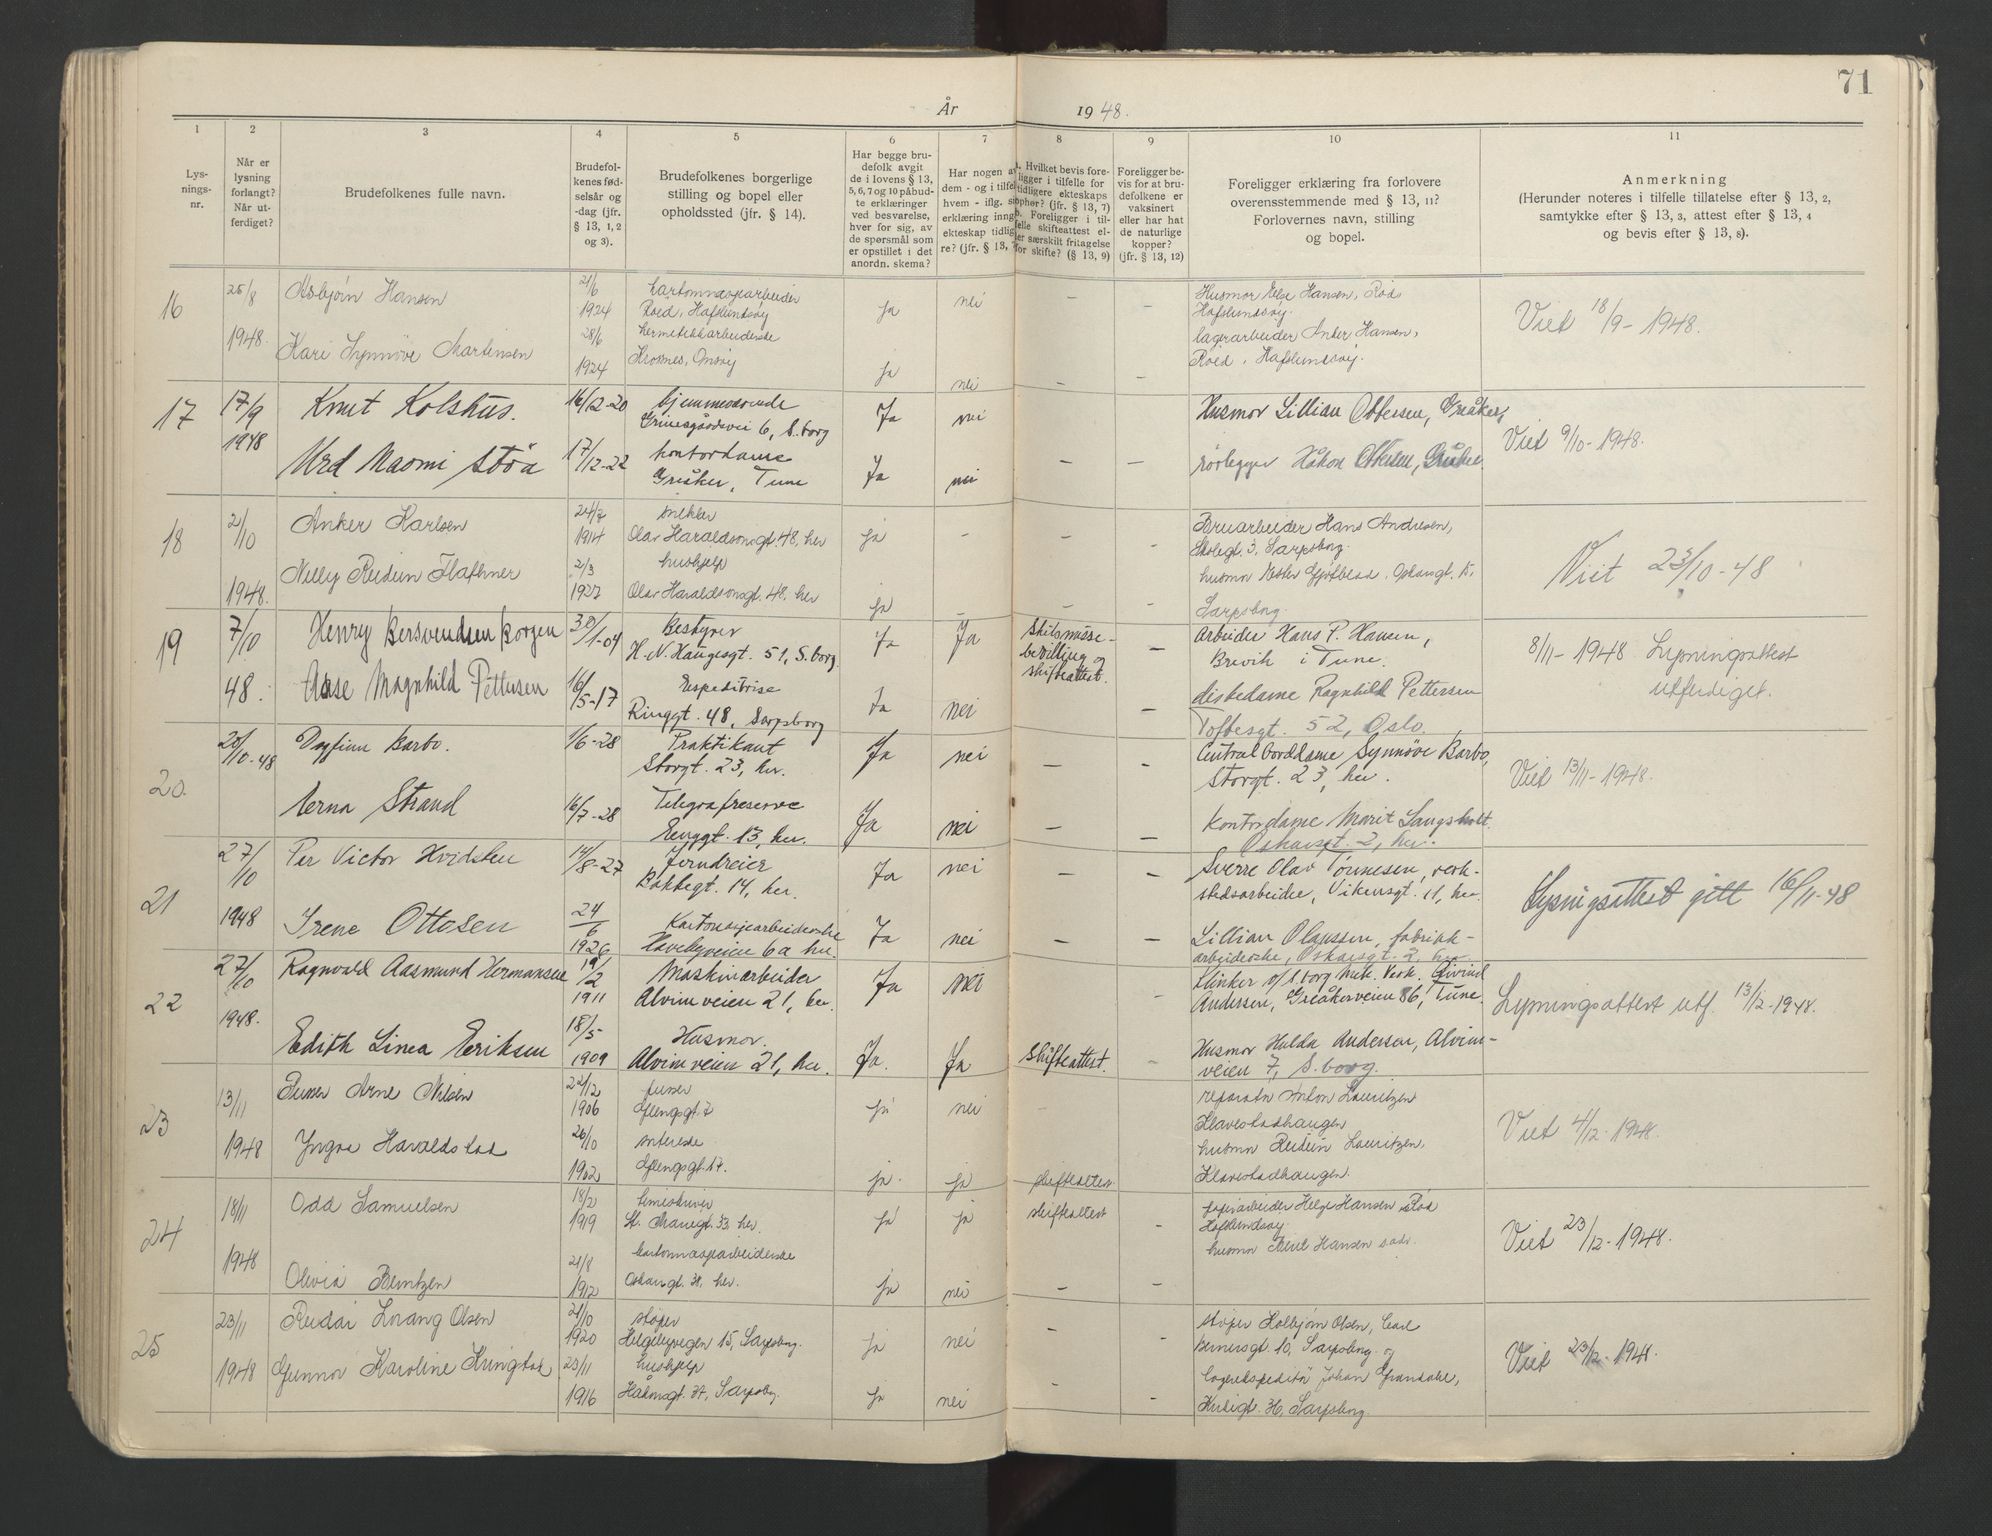 71
År 1948.
1 2 3 4 5 6 7 8 9 10 11
Lysningsnr.
Når er lysning forlangt? Når utferdiget?
Brudefolkenes fulle navn.
Brudefolkenes fødselsår og -dag (jfr. § 13, 1, 2 og 3).
Brudefolkenes borgerlige stilling og bopel eller opholdssted (jfr. § 14).
Har begge brudefolk avgit de i lovens § 13, 5, 6, 7 og 10 påbudte erklæringer ved besvarelse, hver for sig, av de spørsmål som er opstillet i det anordn. skema?
Har nogen av dem - og i tilfel hvem - iflg. erklæring inng ekteskap tidlig re? (jfr. § 13,
Hvilket bevis foreligger i tilfelle for tidligere ekteskaps ophør? (jfr. § 13, 7)
b. Foreligger i tilfelle skifteattest eller særskilt fritagelse for skifte? (§ 13, 9)
Foreligger bevis for at brudefolkene er vaksinert eller har hat de naturlige kopper? (jfr. § 13, 12)
Foreligger erklæring fra forlovere overensstemmende med § 13, 11? Forlovernes navn, stilling og bopel.
Anmerkning
(Herunder noteres i tilfelle tillatelse efter § 13, 2, samtykke efter § 13, 3, attest efter § 13, 4 og bevis efter § 13, 8).
16 25/8 1948. Asbjørn Hansen 21/6 1924 kartonnagearbeider Roed, Hafslundsøy ja nei – – Husmor Else Hansen, Röd Hafslundsøy.
Kari Synnöve Martinsen 28/6 1924 hermetikkarbeiderske Krosnes, Onsøy ja nei – – lagerarbeider Anker Hansen, Roed, Hafslundsøy.
Viet 18/9 – 1948.
17 17/9 1948 Knut Kolshus. 16/12-20 hjemmeværende Grinesgårdsvei 6, S.borg Ja nei Husmor Lillian Ottersen, Greåker,
Urd Naomi Støa 17/12-22 kontordame Greåker, Tune Ja nei – – rörlegger Håkon Ottersen, Greåker.
Viet 9/10-1948.
18 2/10 1948. Anker Karlsen 24/7 1914 snekker Olav Haraldsonsgt. 48, her ja - - - Bruarbeider Hans Andresen, Skolegt. 3, Sarpsborg.
Nelly Reidun Flathner 2/3 1927 hushjelp Olav Haraldsonsgt. 48, her ja – – – Sarpsborg.
Viet 23/10-48
19 7/10 48. Henry Bersvendsen Borgen 30/1-04 Bestyrer H. N. Haugesgt. 51, S.borg. Ja Ja Skilsmissebevilling og skifteattest. – Arbeider Hans P. Hansen, Brevik i Tune.
Aase Magnhild Pettersen 16/5-17 Ekspeditrise Ringgt. 48, Sarpsborg Ja nei – diskedame Ragnhild Pettersen Toftesgt. 52, Oslo.
8/11-1948 Lysningsattest utferdiget.
20. 20/10-48 Dagfinn Barbo. 1/6-28 Praktikant Storgt. 23, her. Ja nei – – Centralborddame Synnöve Barbo, Storgt. 23, her.
Erna Strand 16/7-28 Telegrafreserve Enggt. 13, her. Ja nei – – Kontordame Marit Langsholt. Oskarsgt. 2, her.
Viet 13/11-1948.
21 27/10 1948 Per Victor Hvidsten 14/8-27 Jerndreier Bakkegt. 14, her. Ja nei Sverre Olav Tønnesen, verkstedsarbeider, Vikensgt. 11, her.
Irene Ottosen 24/6 1926 Kartonasjearbeiderske Havebyveien 6a her. Ja nei – – Lillian Olaussen, fabrikkarbeiderske, Oskarsgt. 2, her.
Lysningsattest gitt 16/11-48
22 27/10 1948. Ragnvald Aasmund Hermansen 19/2 1911 Maskinarbeider Alvimveien 21, her. Ja nei - Klinker v/ S.borg Mek. Verk. Eivind Andersen, Greåkerveien 86, Tune.
Edith Linea Eriksen 18/5 1909 Husmor. Alvimveien 21, her. Ja. Ja Skifteattest. - Husmor Hulda Andersen, Alvimveien 7, S.borg.
Lysningsattest utf. 13/12-1948.
23 13/11 1948 Arne Nilsen 22/12 1906 Glengsgt 7 ja nei reparatør Anton Lauritzen Klavestadhaugen
Yngva Haraldstad 26/10 1902 Glengsgt. 17. ja. ja skifteattest husmor Reidun Lauritzen, Klavestadhaugen.
Viet 4/12-1948.
24 18/11 1948 Odd Samuelsen 18/2 1919 St. Mariegt. 33 her. ja ja skifteattest - papirarbeider Helge Hansen Röd Hafslundsøy
Olivia Bentzen 21/8 1912 kartonnasjearbeiderske Oskarsgt. 31, her. ja nei – – husmor Berit Hansen sads.
Viet 23/12-1948.
25 23/11 1948 Reidar Lorang Olsen 21/10 1920 støper Helgebyvegen 15, Sarpsborg. ja nei – – støper Kolbjørn Olsen, Carl Bernersgt. 10, Sarpsborg og
Gunnor Karoline Kringstad 23/11 1916 hushjelp Håkonsgt. 37, Sarpsbg. ja nei – – lagerekspeditør Johan Grandahl, Sarpsborg.
Viet 23/12-1948.